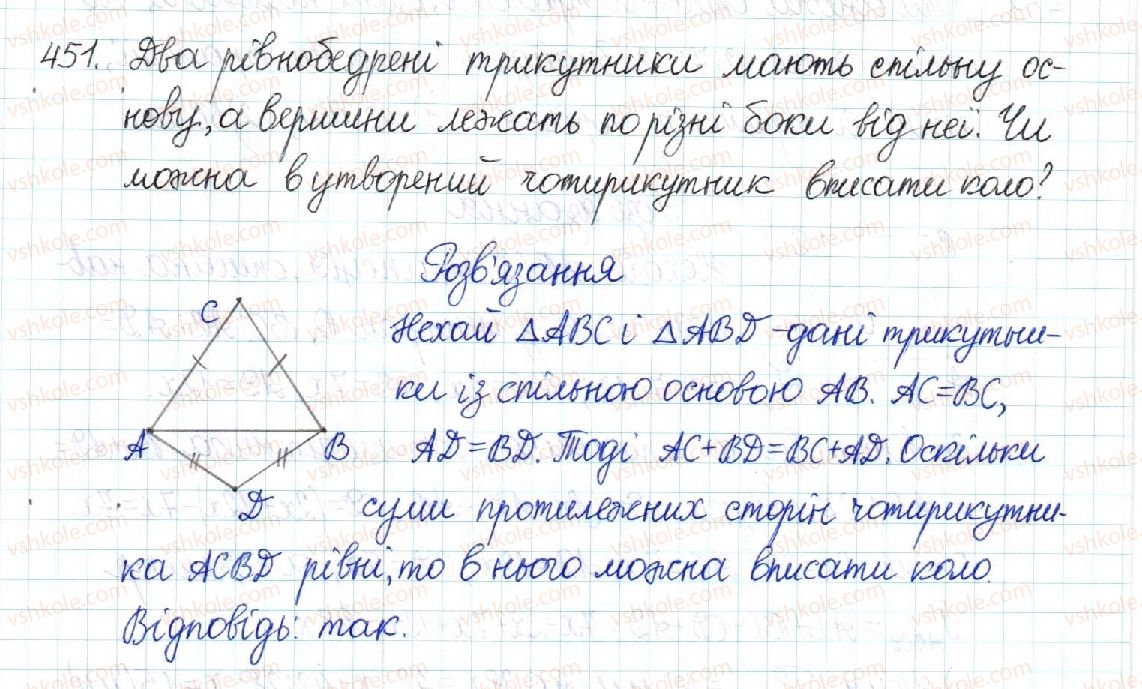 451. Два рівнобедрені трикутники мають спільну ос-
нову, а вершини лежать по різні боки від неї. Чи
можна в утворений чотирикутник вписати коло?
Розв'язання
C
Нехай △ABC і △ABD - дані трикутни-
ки із спільною основою AB. AC=BC,
A B
AD=BD. Тоді AC+BD=BC+AD. Оскільки
D
суми протилежних сторін чотирикутни-
ка ACBD рівні, то в нього можна вписати коло.
Відповідь: так.
vshkole.com